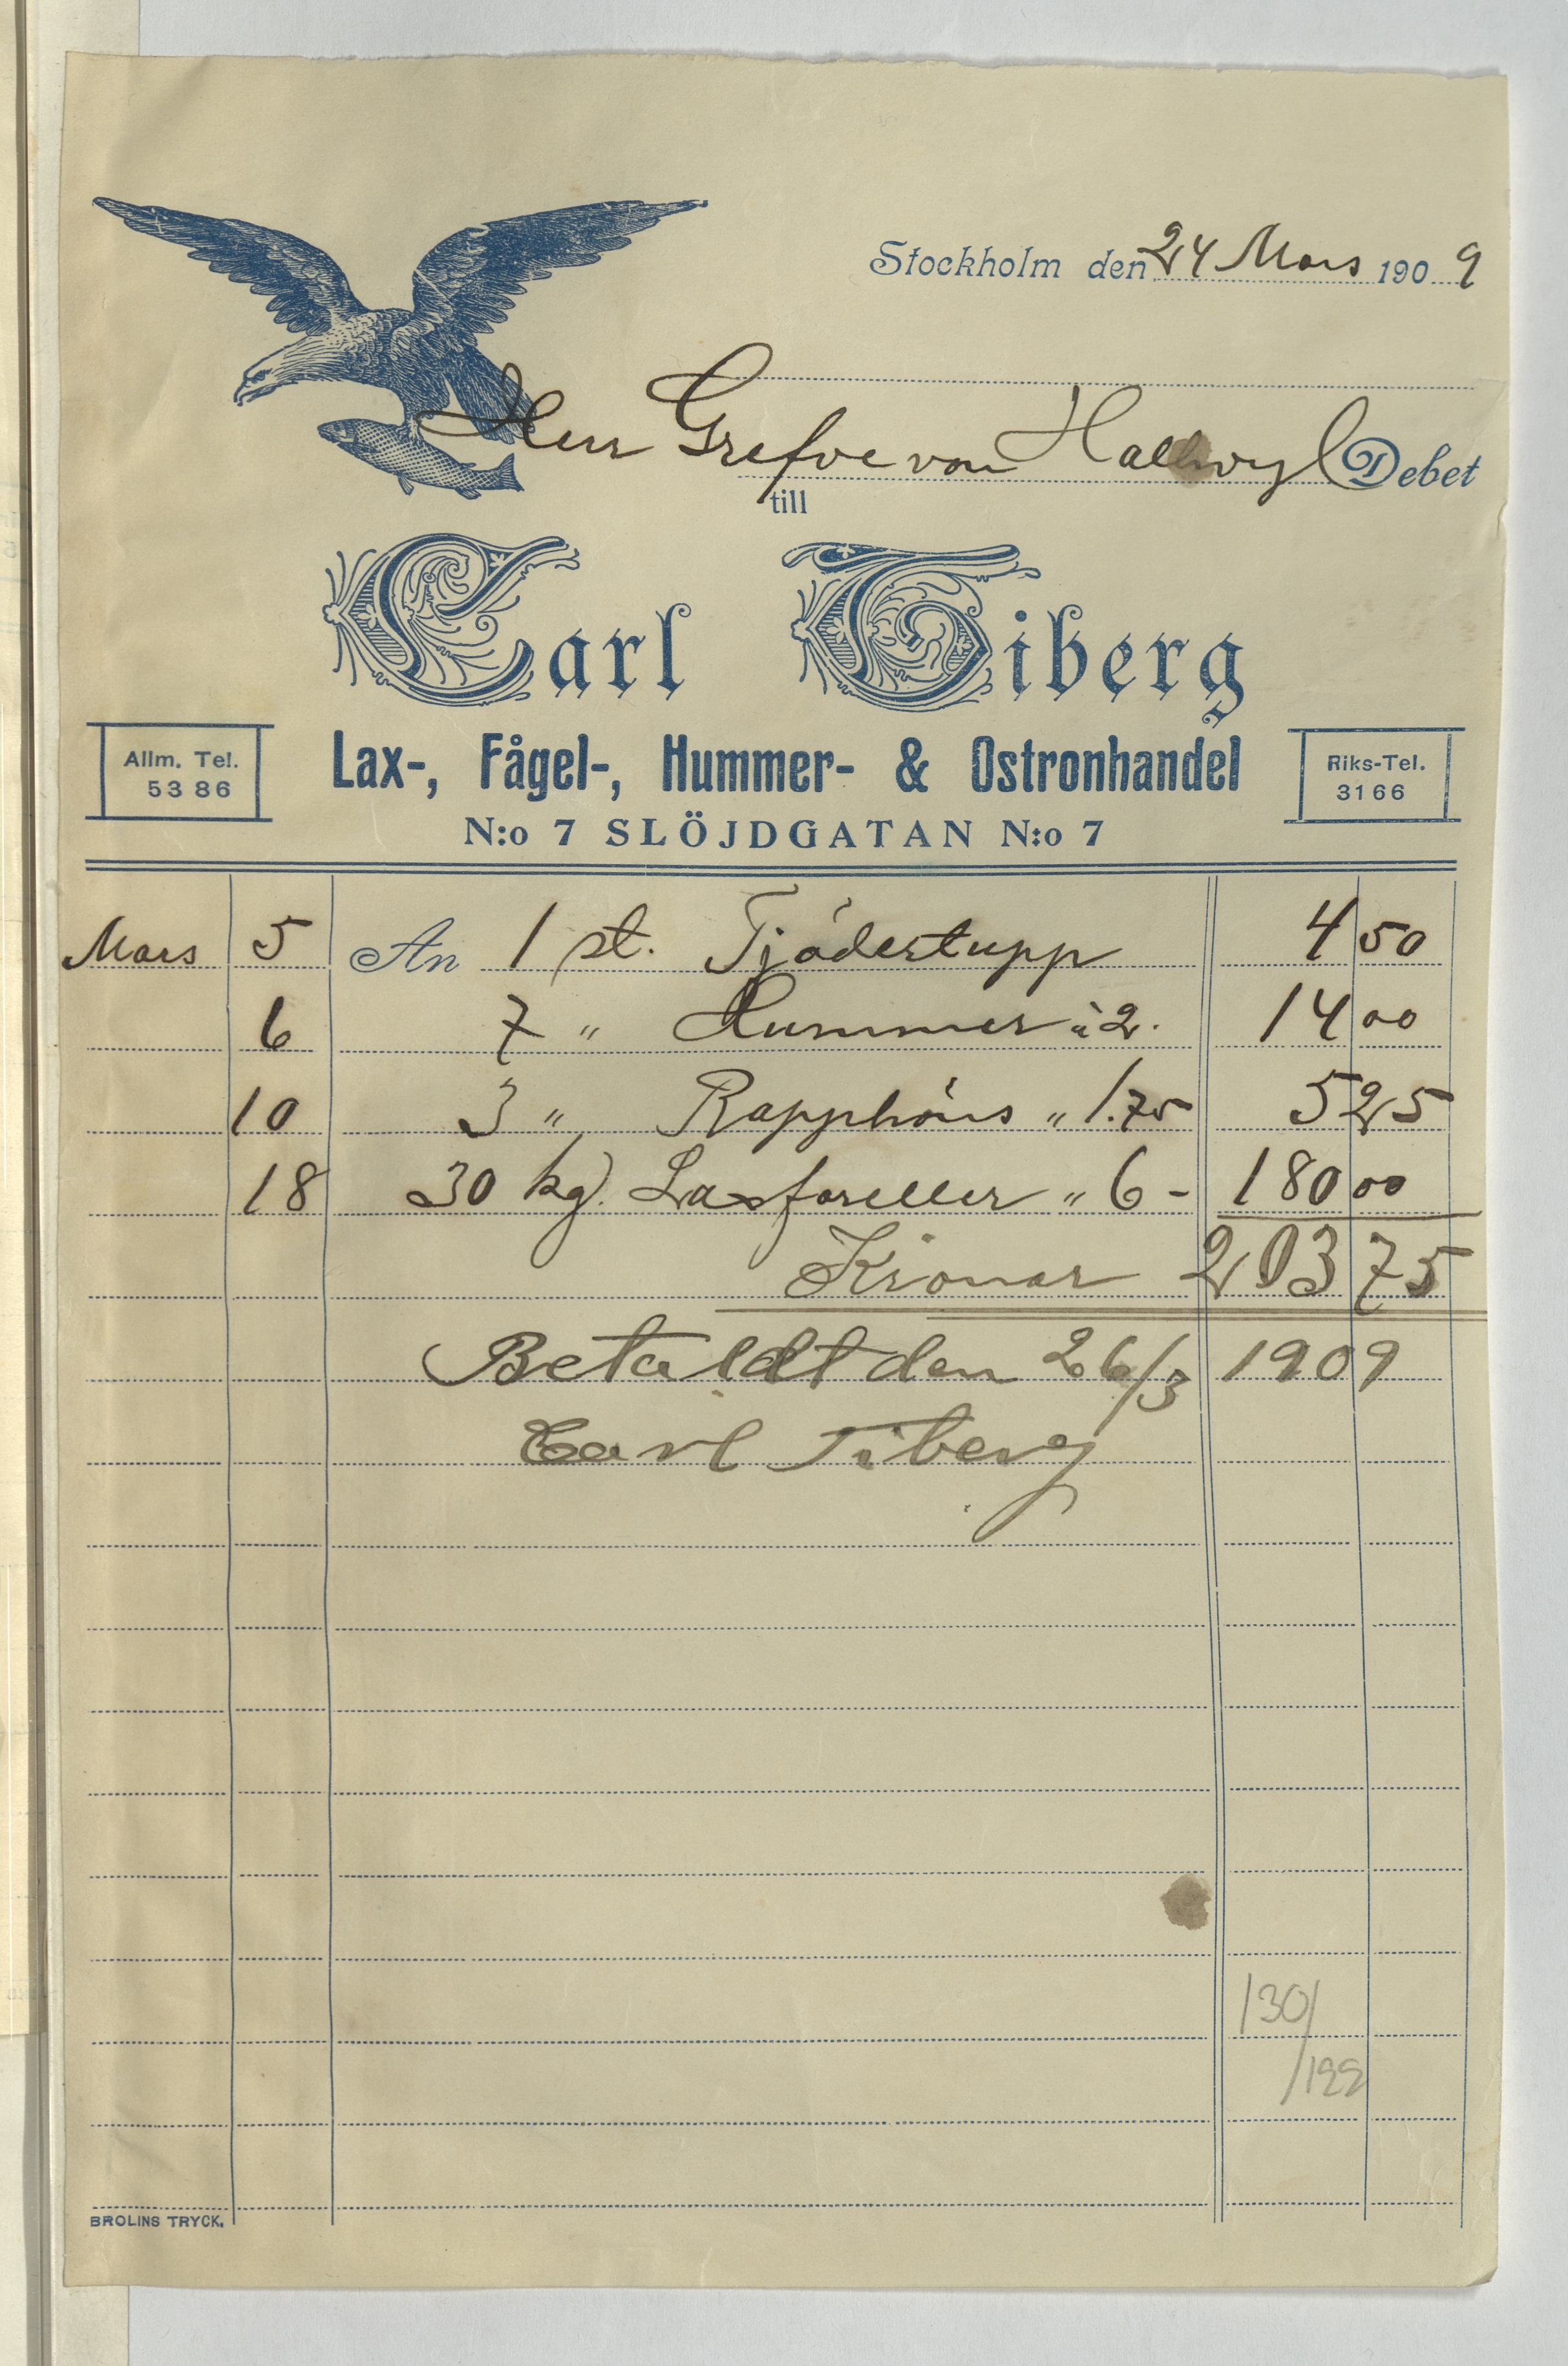 Stockholm den 24 Mars 1909
Herr Grefve von Hallwyl Debet
till
Carl Tiberg
Allm. Tel.
5386
Lax-, Fågel-, Hummer- & Ostronhandel
Riks-Tel.
3166
N:o 7 SLÖJDGATAN N:o 7
Mars 5 An 1 st. Tjädertupp 4 50
6 7 " Hummer à 2. 14 00
10 3 " Rapphöns " 1.75 5 25
18 30 kg. Laxforeller " 6 - 180 00
Kronor 203 75
Betaldt den 26/3 1909
Carl Tiberg
130/
/199
BROLINS TRYCK.